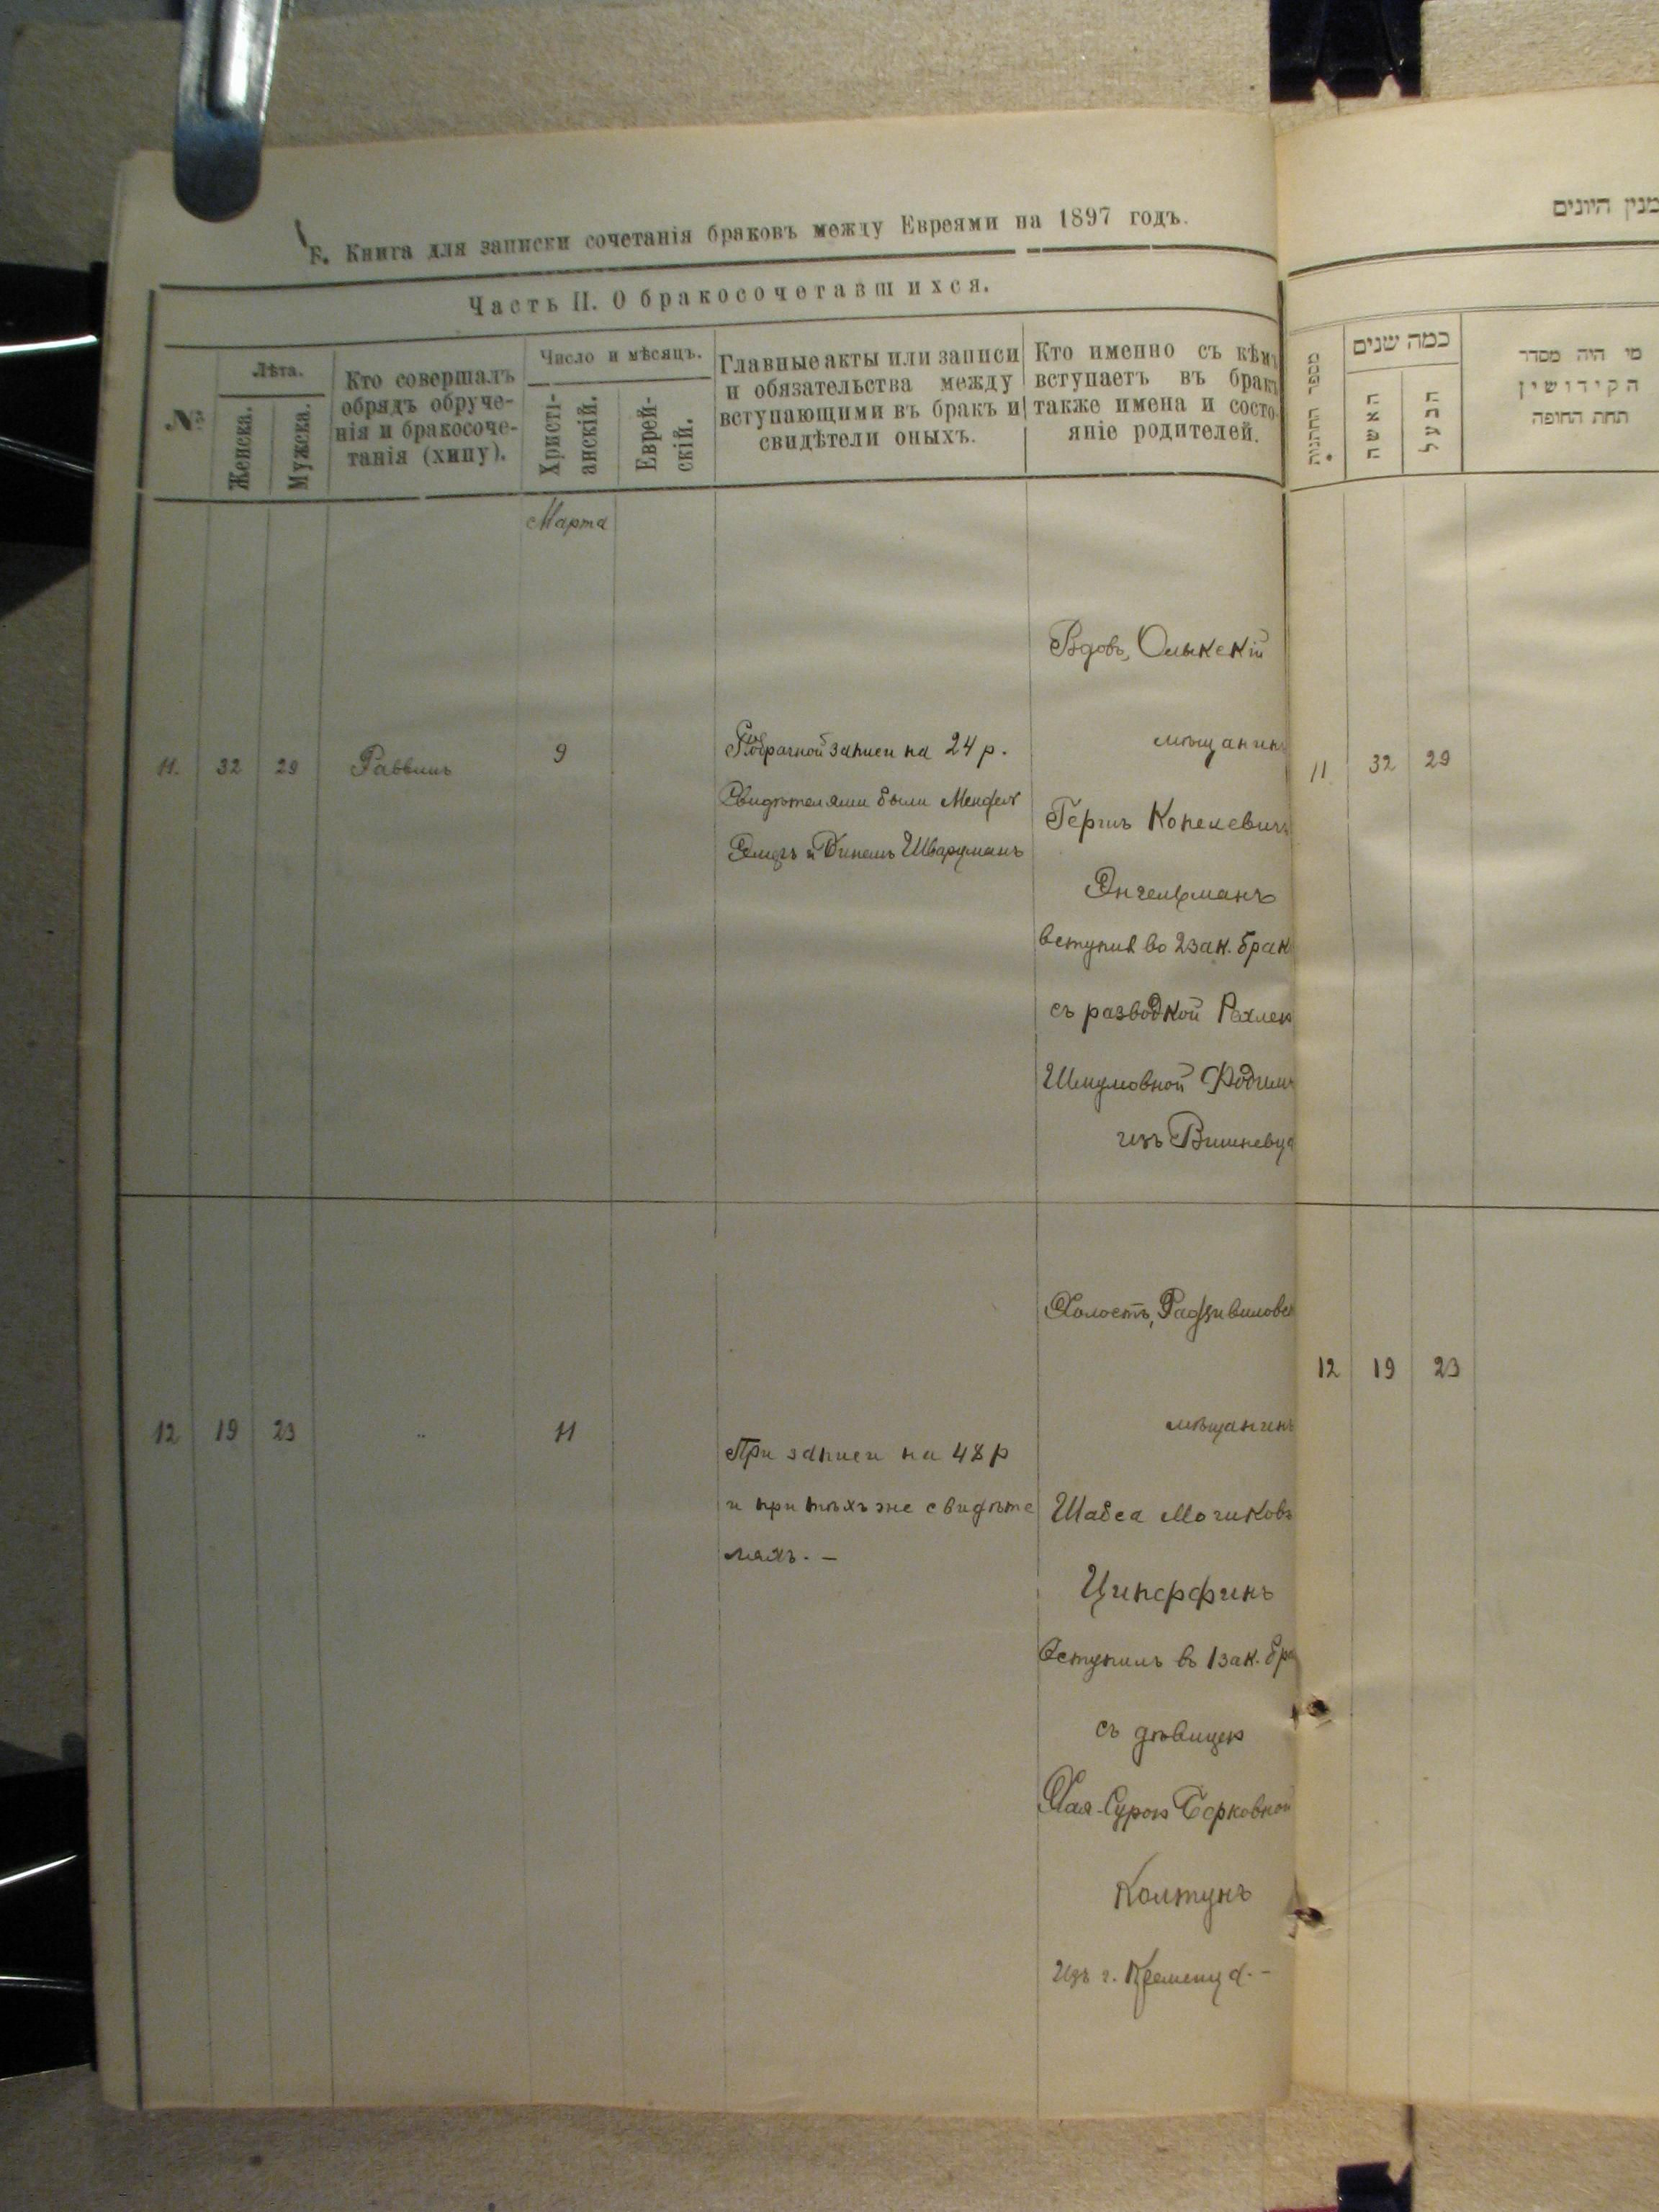 Б. Книга для записки сочетанія браковъ между Евреями на 1897 годъ.
Часть II. О бракосочетавшихся.
№
Лѣта.
Женска.
Мужска.
Кто совершалъ
обрядъ обруче-
нія и бракосоче-
танія (хипу).
Число и мѣсяцъ.
Христі-
анскій.
Еврей-
скій.
Главные акты или записи
и обязательства между
вступающими въ бракъ и
свидѣтели оныхъ.
Кто именно съ кѣмъ
вступаетъ въ бракъ
также имена и состо-
яніе родителей.
Марта
11. 32 29 Раввинъ 9
записи на 24 р.
Свидѣтелями были Мендель
и Шварцманъ
Вдовъ, Олыкскій
мѣщанинъ
Гершъ Копелевичъ
Энгельманъ
вступилъ во 2 зак. бракъ
съ разводкой Рахлею
Шмуловной
изъ Вишневца
12 19 23 " 11
При записи на 48 р
и при тѣхъ же свидѣте
ляхъ. —
Холостъ, Радзивиловск
мѣщанинъ
Шабса
Циперфинъ
вступилъ въ 1 зак. бра
съ дѣвицею
Хая-Сурою Берковной
Колтунъ
Изъ г. Кременца. —
מנין היונים
מספר החתונות
כמה שנים
האשה
הבעל
מי היה מסדר
הקידושין
תחת החופה
11 32 29
12 19 23